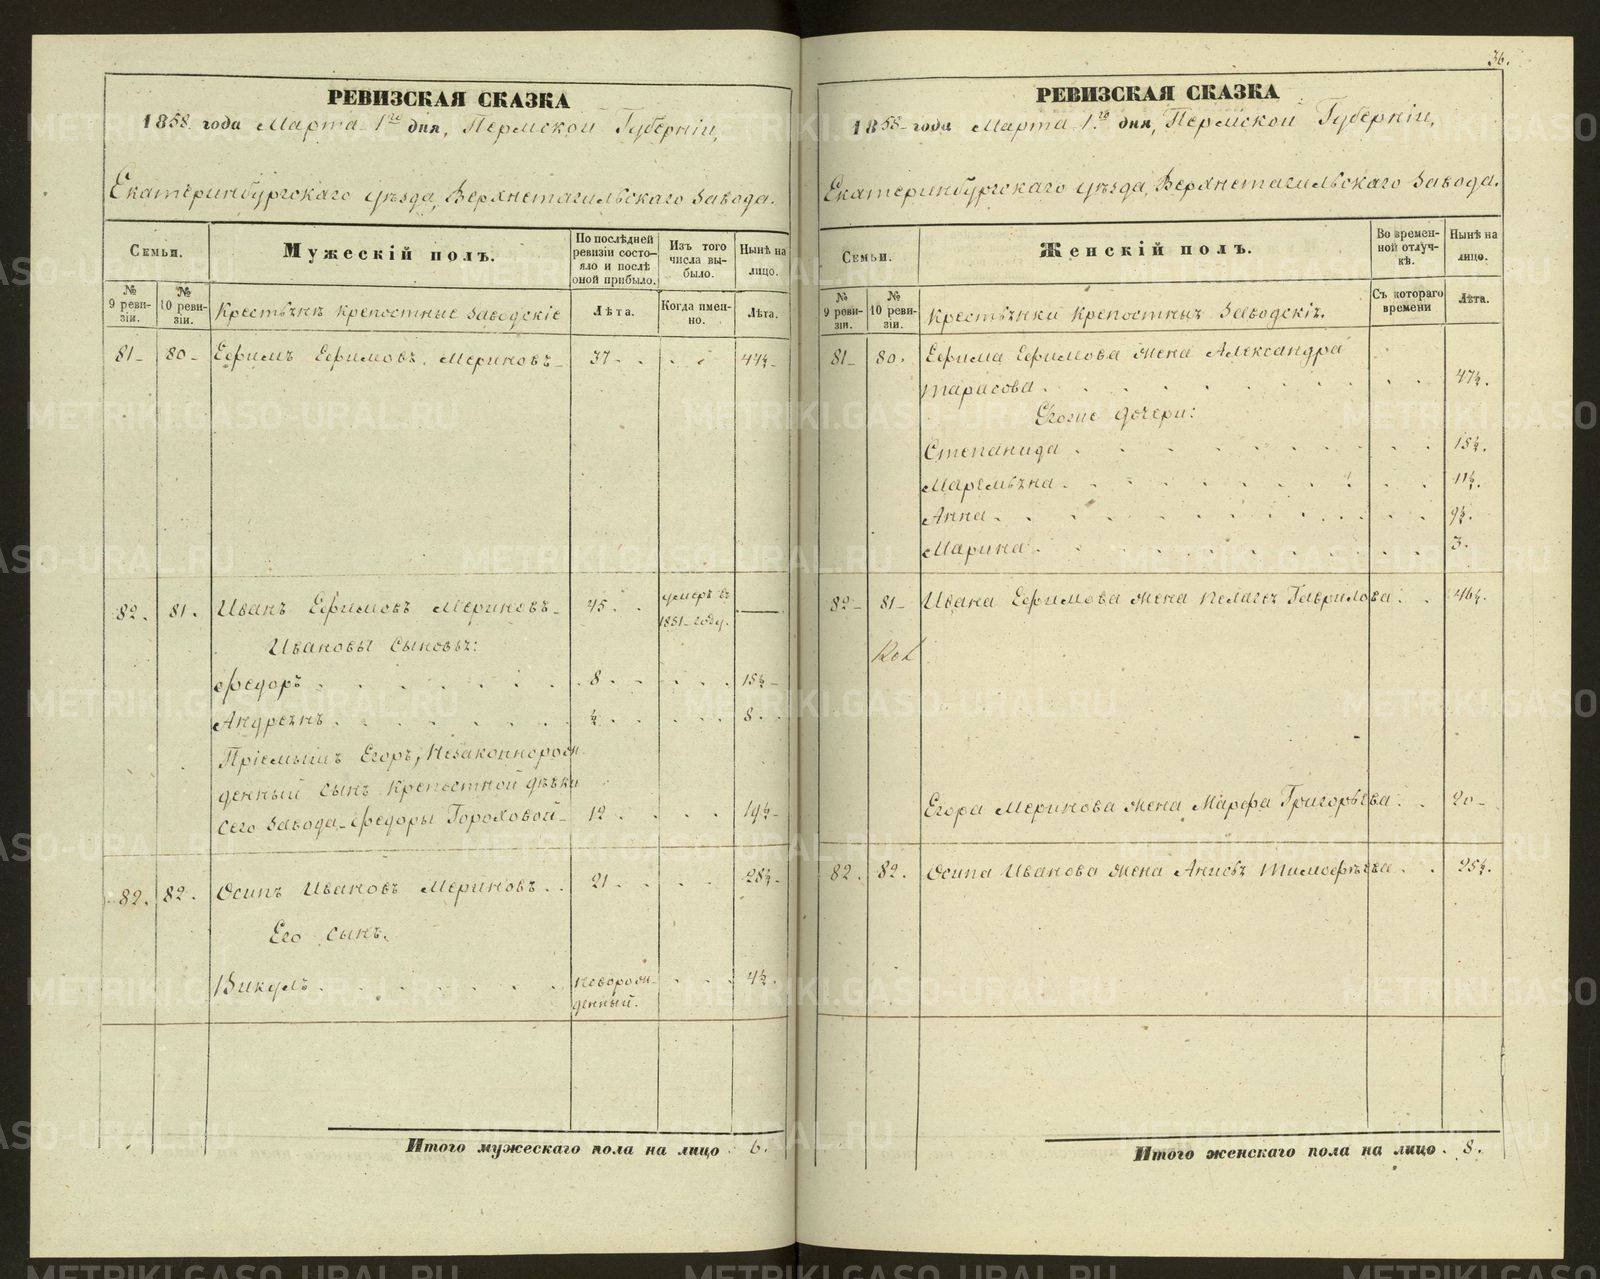 РЕВИЗСКАЯ СКАЗКА
1858 года Марта 1го дня, Пермской Губерніи,
Екатеринбургскаго уѣзда, Верхнетагильскаго Завода.
Семьи.
Мужескій полъ.
По послѣдней ревизіи состояло и послѣ оной прибыло.
Изъ того числа выбыло.
Нынѣ на лицо.
№ 9 ревизіи.
№ 10 ревизіи.
Крестьяне крепостные заводскіе
Лѣта.
Когда именно.
Лѣта.
81 80 Ефимъ Ефимовъ Мериновъ 37 44½
82. 81. Иванъ Ефимовъ Мериновъ 45 умеръ въ 1851 году.
Ивановы сыновья:
Федоръ 8 15½
Андреянъ ½ 8
Пріемышъ Егоръ, незаконнорож
денный сынъ крепостной дѣвки
сего Завода Федоры Гороховой 12 19½
82. 82. Осипъ Ивановъ Мериновъ 21 28½
Его сынъ.
Викулъ новорож
денный. 4½
Итого мужескаго пола на лицо 6.
36.
РЕВИЗСКАЯ СКАЗКА
1858 года Марта 1го дня, Пермской Губерніи,
Екатеринбургскаго уѣзда, Верхнетагильскаго Завода.
Семьи.
Женскій полъ.
Во временной отлучкѣ.
Нынѣ на лицо.
№ 9 ревизіи.
№ 10 ревизіи.
Крестьянки крепостныя заводскія.
Съ котораго времени
Лѣта.
81 80. Ефима Ефимова жена Александра
Тарасова 47½.
Егоже дочери:
Степанида 15½.
Маремьяна 11½.
Анна 9½.
Марина 3.
82 81 Ивана Ефимова жена Пелагея Гаврилова 46½.
Егора Меринова жена Марфа Григорьева 20
82. 82. Осипа Иванова жена Анисья Тимофеѣва 25½.
Итого женскаго пола на лицо 8.
METRIKI.GASO-URAL.RU